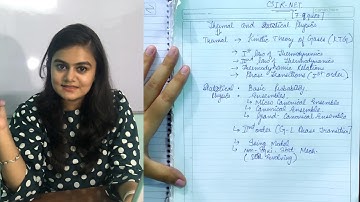 CSIR-NET
[7 ques]
Thermal and Statistical Physics
Thermal → Kinetic Theory of Gases (KTG)
→ Ist law of Thermodynamics
→ IInd law of Thermodynamics
→ Thermodynamic Relations
→ Phase Transitions (Ist order)
Statistical → Basic Probability
Physics → Ensembles
→ Micro Canonical Ensemble
→ Canonical Ensemble
→ Grand Canonical Ensemble
→ IInd order (G-L Phase Transition)
→ Ising Model
→ Non-Equi. Stat. Mech.